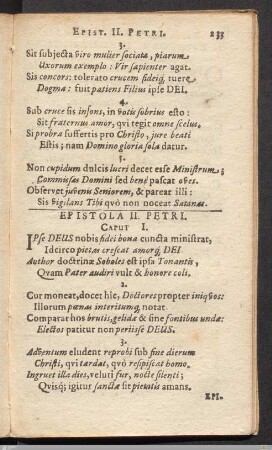 EPIST. II. PETRI. 233
3.
Sit subjecta viro mulier sociata, piarum
Uxorum exemplo: Vir sapienter agat.
Sis concors: tolerato crucem fideiq́, tuere
Dogma: fuit patiens Filius ipse DEI.
4.
Sub cruce sis insons, in votis sobrius esto:
Sit fraternus amor, qvi tegit omne scelus.
Si probra suffertis pro Christo, jure beati
Estis; nam Domino gloria sola datur.
5.
Non cupidum dulcis lucri decet esse Ministrum;
Commissas Domini sed benè pascat oves.
Observet juvenis Seniorem, & pareat illi:
Sis vigilans Tibi qvò non noceat Satanas.
EPISTOLA II. PETRI.
CAPUT I.
IPse DEUS nobis fidei bona cuncta ministrat,
Idcirco pietas crescat amorq́, DEI
Author doctrinæ Soboles est ipsa Tonantis,
Qvam Pater audiri vult & honore coli.
2.
Cur moneat, docet hîc, Doctores propter iniqvos:
Illorum pœnas interitumq́, notat
Comparat hos brutis, gelidæ & sine fontibus undæ:
Electos patitur non periisse DEUS.
3.
Adventum eludent reprobi sub fine dierum
Christi, qvi tardat, qvò respiscat homo.
Ingruet illa dies, veluti fur, nocte silenti;
Qvisq́; igitur sanctæ sit pietatis amans.
EPI-